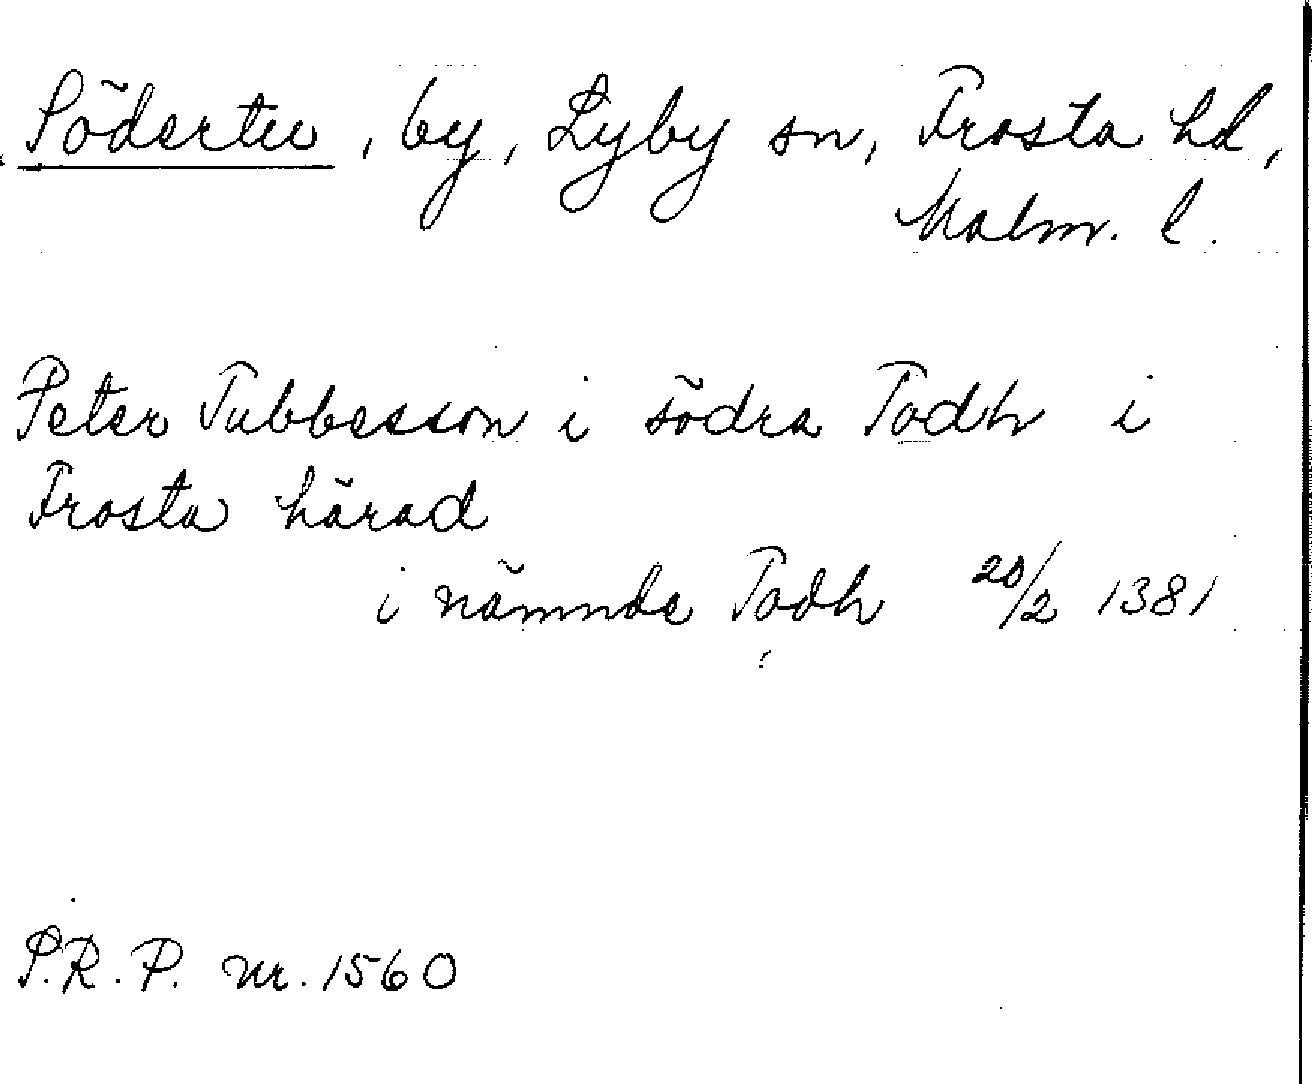 Södertu, by, Lyby sn, Frosta hd,
Malm. l.
Peter Tubbesson i södra Todh i
Frosta härad
i nämnde Todh 20/2 1381
S.R.P. nr. 1560